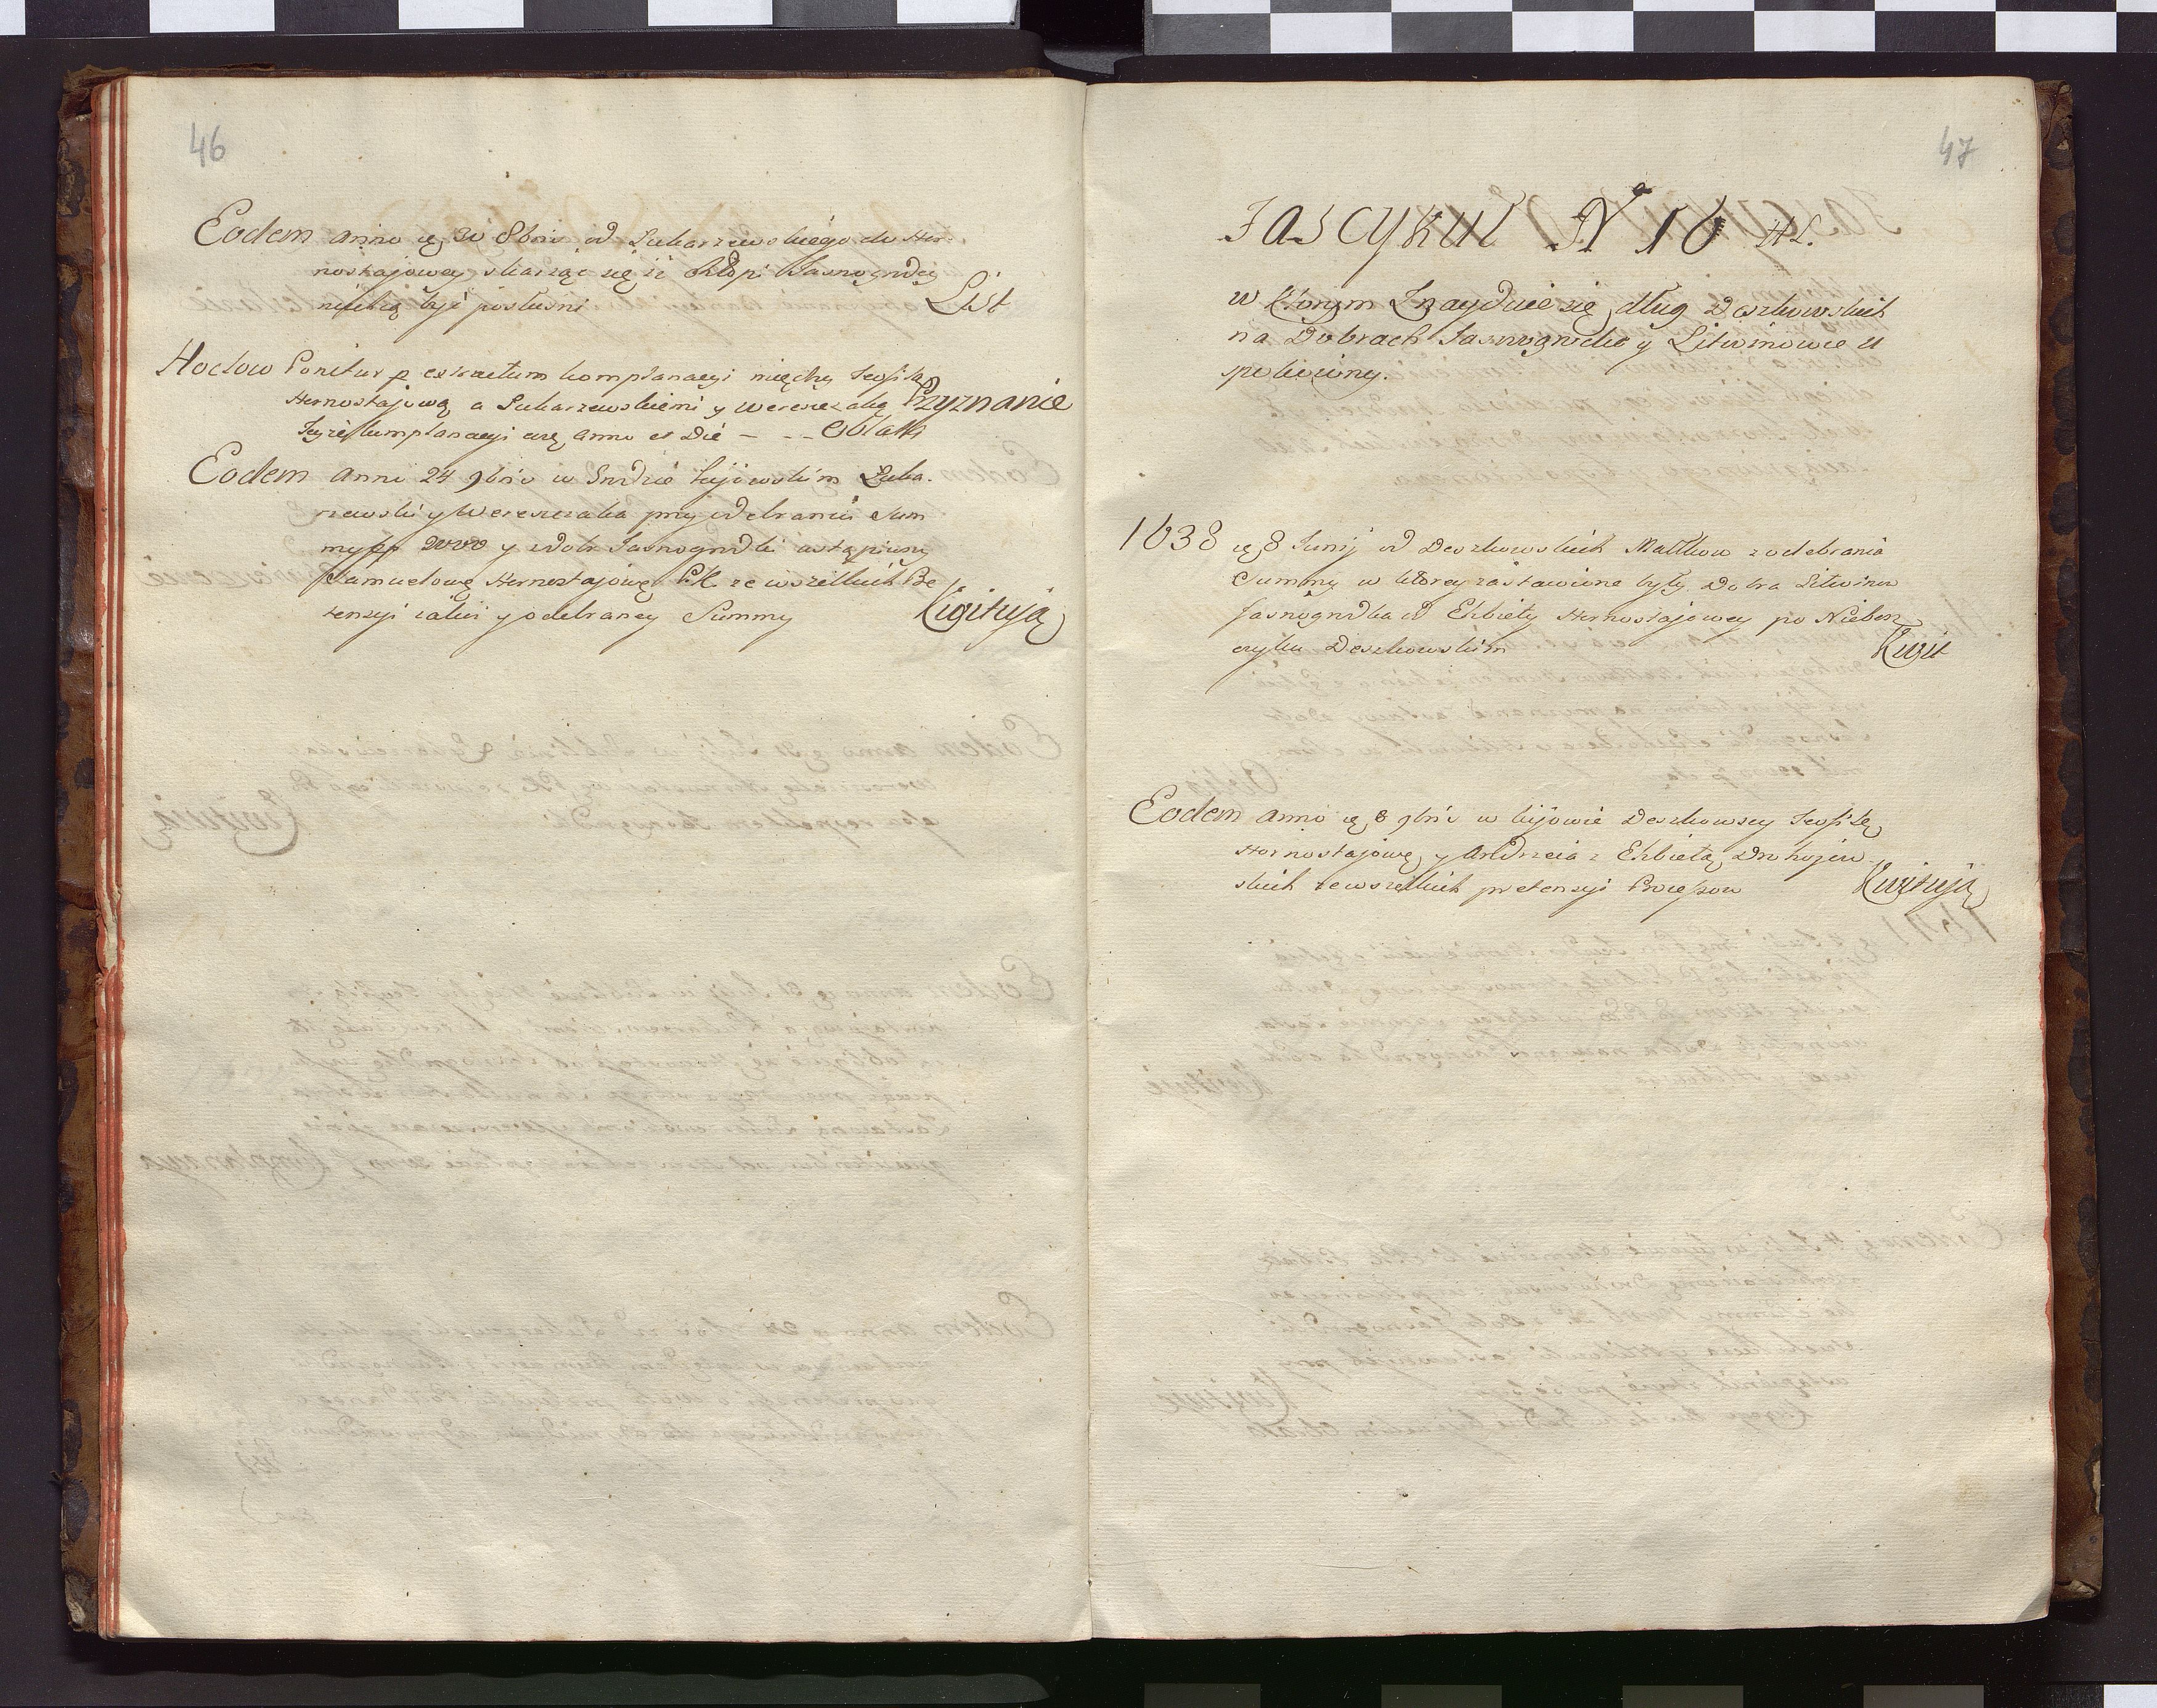 46
Eodem anno ą 30 8bris od Sucharzewskiego do Hor-
nostajowey skarżąc się iż Chłopi Jasnogrodcy
niechcą być posłuszni List
Hoctow Ponitur p extractum komplanacyi między Teofilą
Hornostajową a Sucharzewskiemi y Wereszczaką Przyznanie
Teyże komplanacyi anno et Die - - - Oblata
Eodem Anni 24 9bris w Grodzie Kijowskim Sucha-
rzewski y Wereszczaka przy odebraniu Sum
my 2000 y z Dobr Jasnogrodki ustąpiwszy
Samuelową Hornostajową PK ze wszelkich Pre
tensyi y odebraney Summy Kwitują
47
Fascykuł N 16 HL.
w ktorym Znayduie się dług Deszkowskich
na Dobrach Jasnogrodce y Litwinowce u
spokoiony.
1638 ą 8 Junij od Deszkowskich Małżkow z odebrania
Summy w ktorey zastawione były Dobra Litwinow
Jasnogrodka od Elżbiety Hornostajowey po Niebosz
czyku Deszkowskim Kwit
Eodem anno ą 8 9bris w Kijowie Deszkowscy Teofilę
Hornostajową y Andrzeia z Elżbietą Drohojew
skich ze wszelkich pretensyi Processow Kwitują